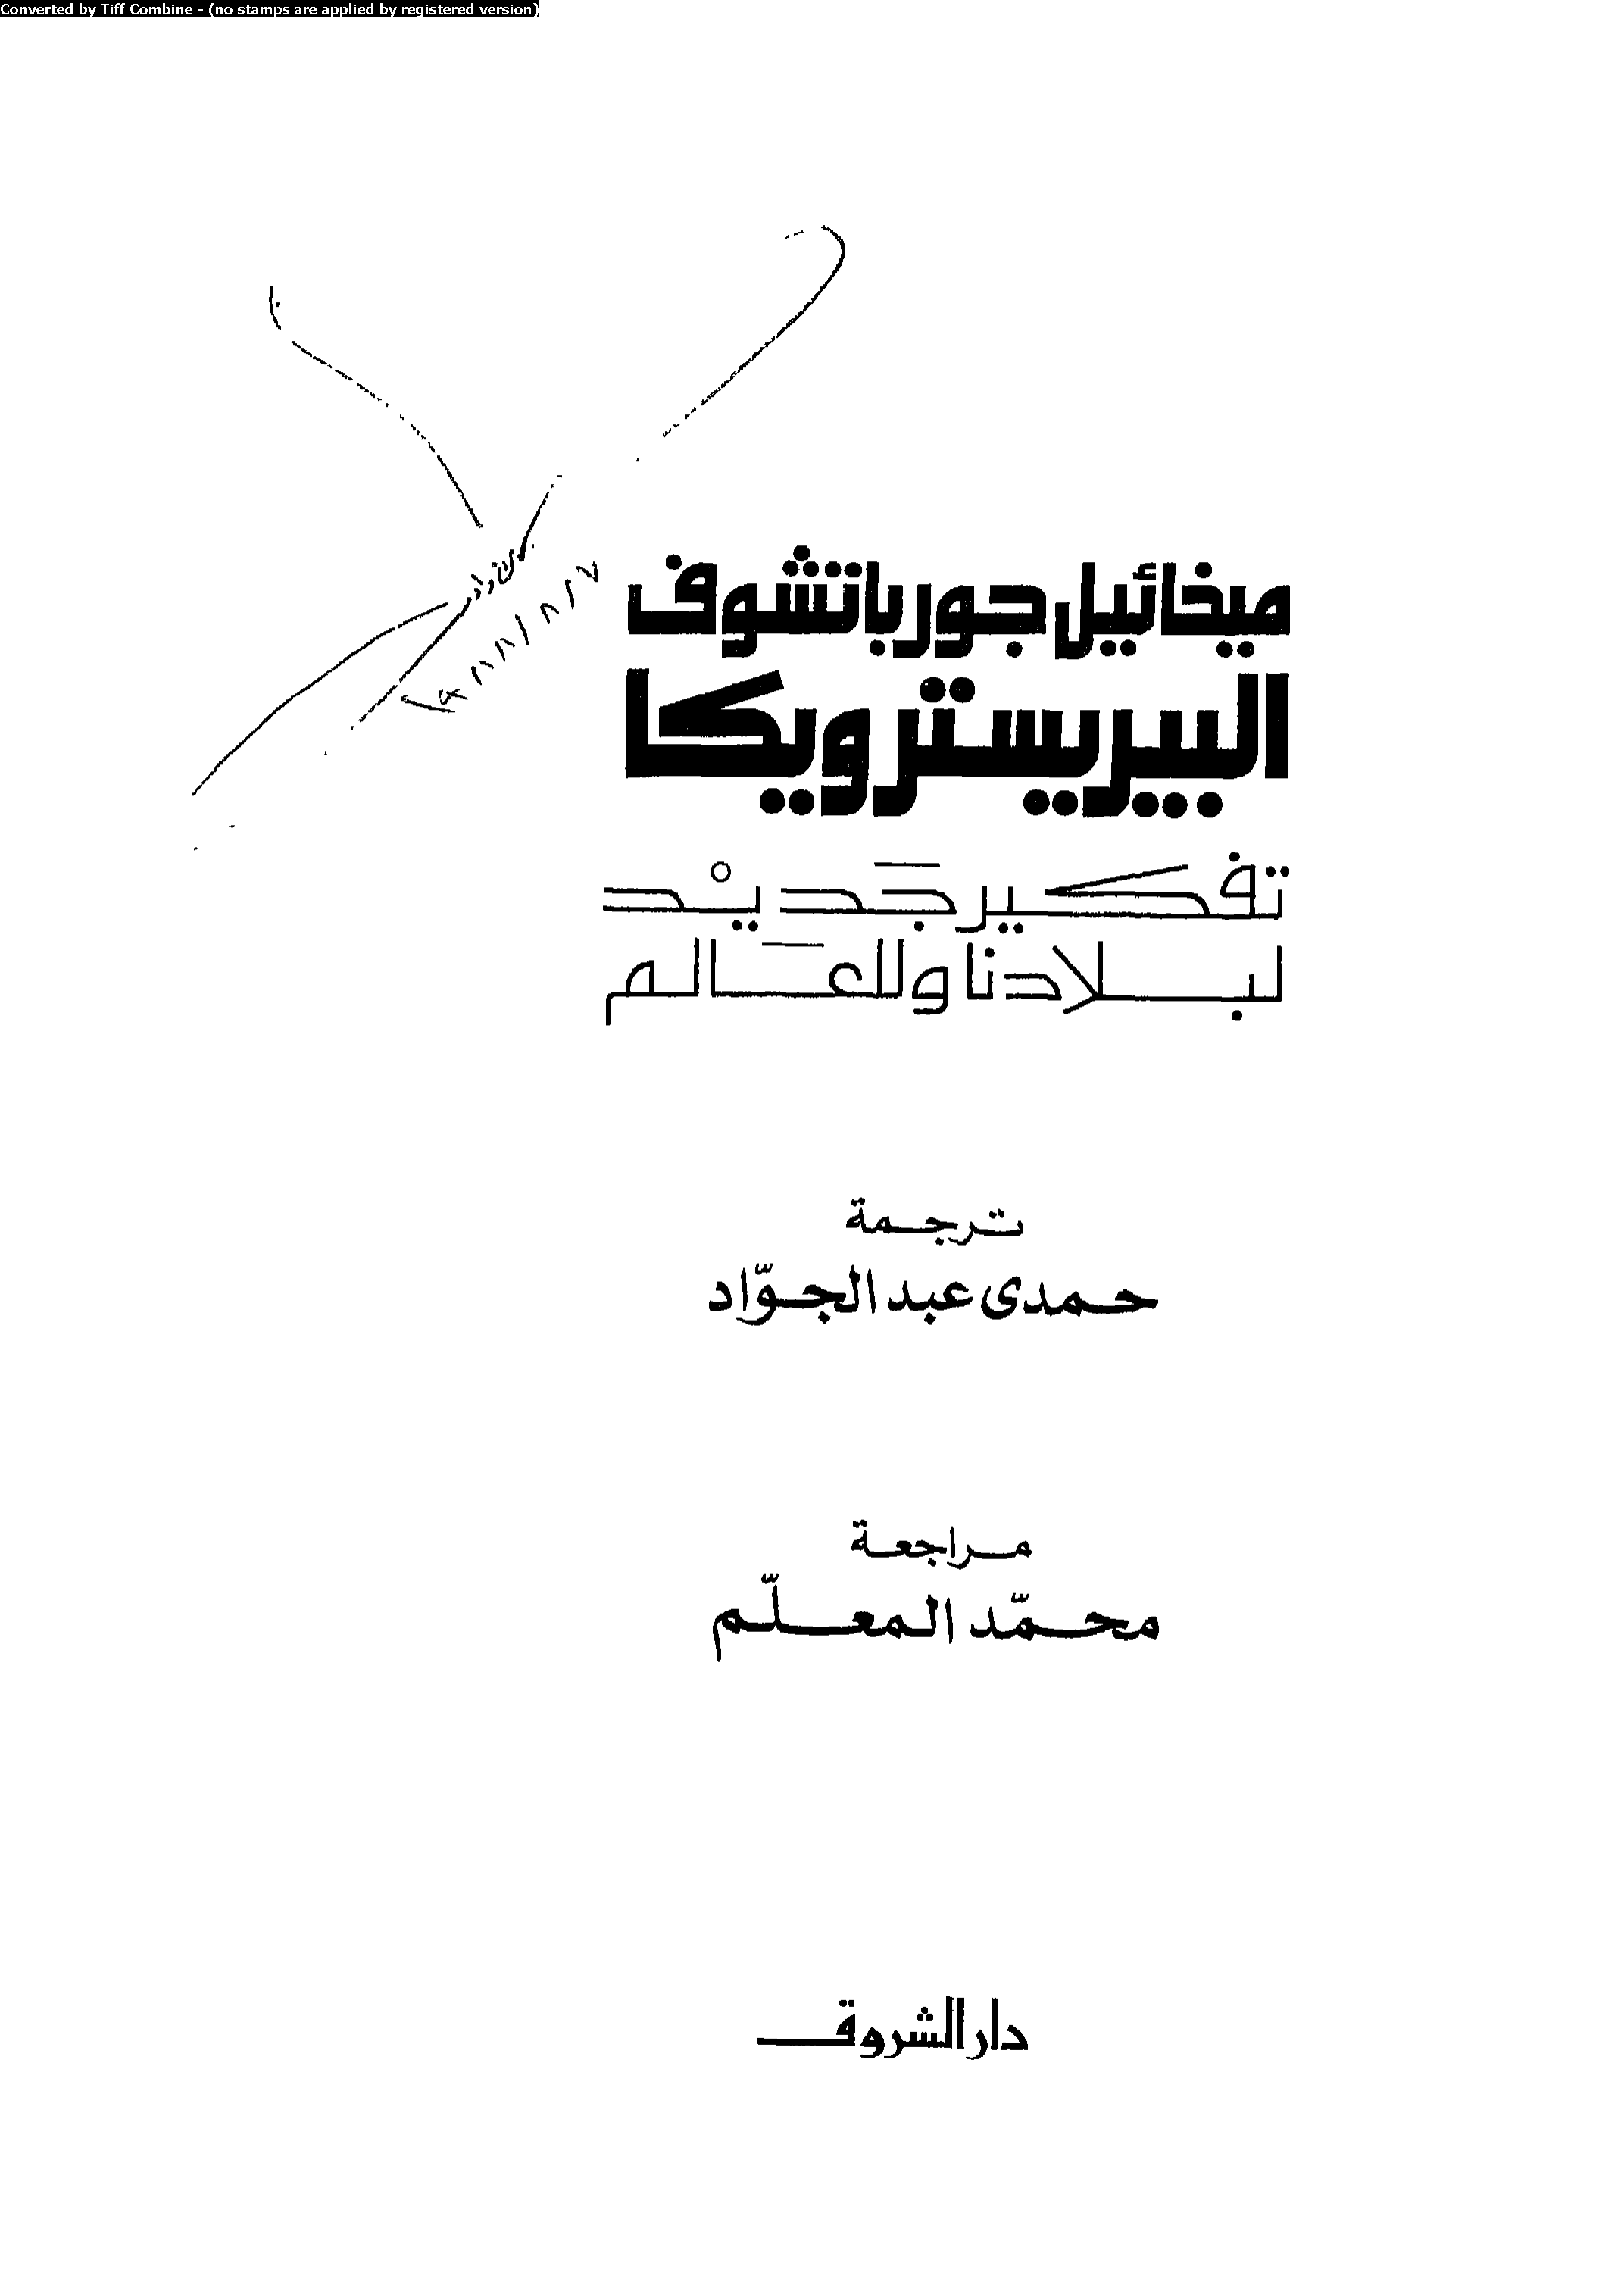 Converted by Tiff Combine - (no stamps are applied by registered version)
ميخائيل جورباتشوف
البيريسترويكا
تفكير جَديْد
لبلادنا وللعَالم
ترجمة
حمدى عبد الجوّاد
مراجعة
محمّد المعلّم
دار الشروق